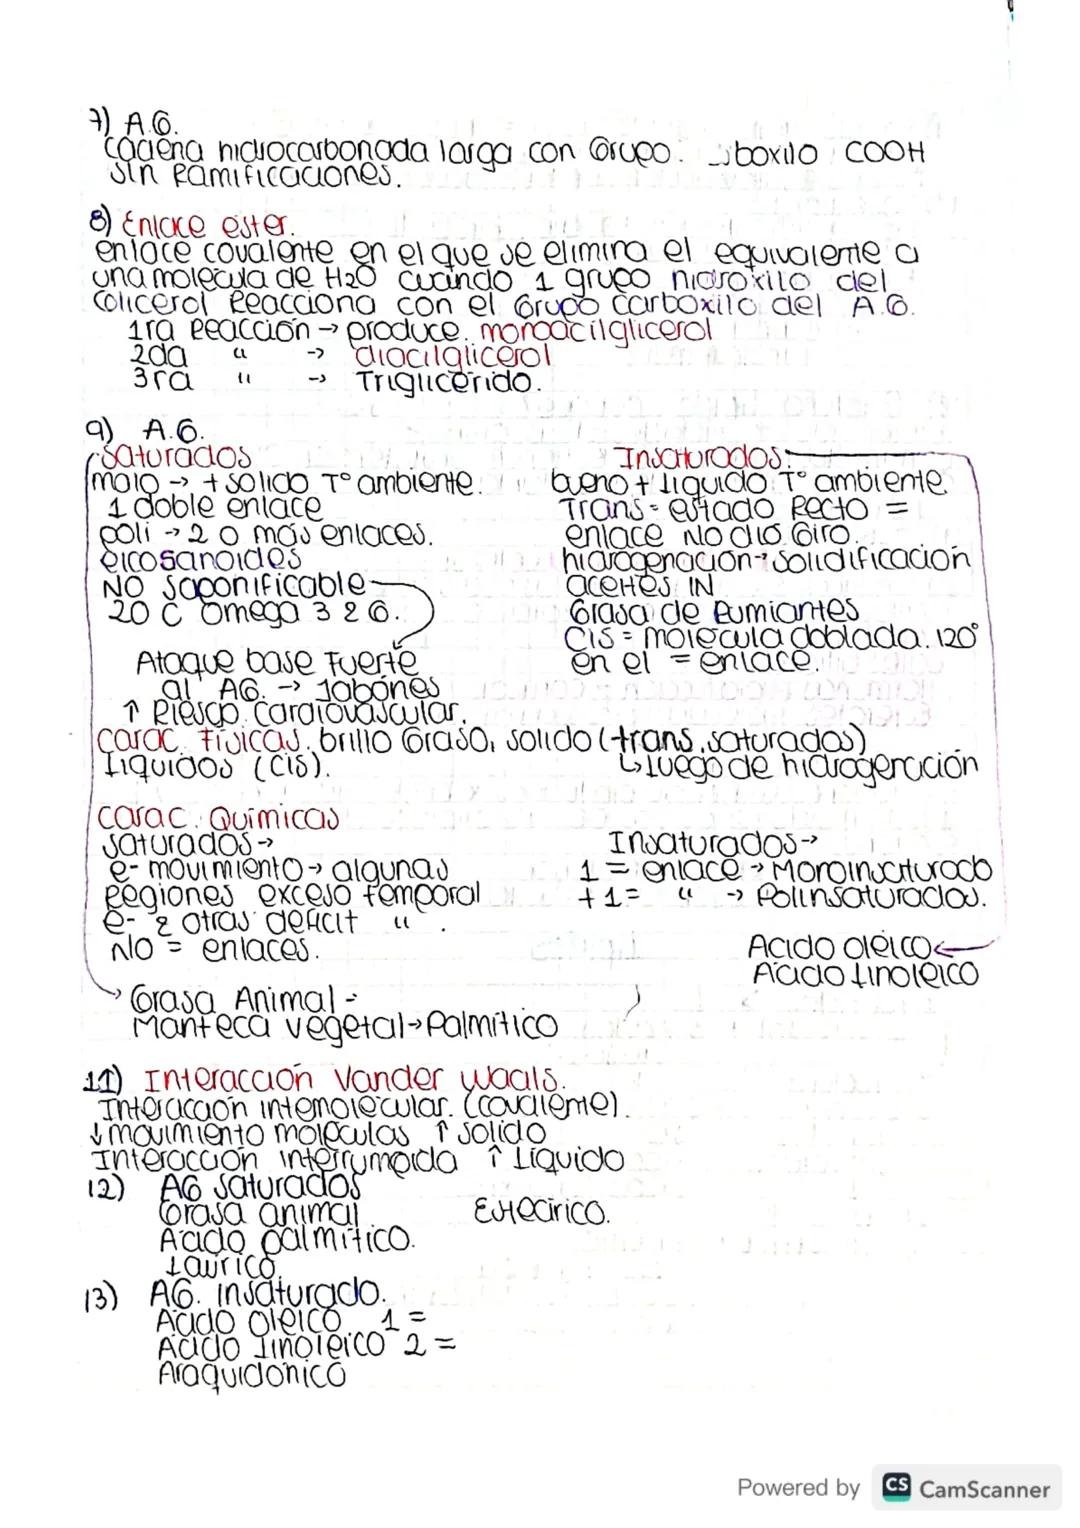 7) A.G.
cadena hidrocarbonada larga con Grupo. boxilo COOH
Sin Ramificaciones.
8) Enlace ester.
enlace covalente en el que se elimina el equivalente a
una molecula de H2O cuando 1 grupo hidroxilo del
Glicerol Reacciona con el Grupo carboxilo del A.G.
1ra Reacción → produce. monoacilglicerol
2da " → diacilglicerol
3ra " → Triglicérido.
9) A.G.
Saturados
malo → + solido T° ambiente.
1 doble enlace
poli → 2 o más enlaces.
eicosanoides
NO Saponificable
20 C Omega 3 & 6.
Ataque base Fuerte
al AG. → Jabónes
↑ Riesgo Cardiovascular.
Insaturados.
bueno + liquido T° ambiente
Trans = estado Recto =
enlace NO dio Giro.
hidrogenación → Solidificación
aceites IN
Grasa de Rumiantes
Cis = molécula doblada. 120°
en el = enlace.
Carac. Físicas. brillo Graso, solido (trans, saturados)
Liquidos (Cis).
↳ luego de hidrogeración
Carac. Químicas
Saturados →
e- movimiento → algunas
Regiones exceso temporal
e- & otras deficit " .
No = enlaces.
Insaturados →
1 = enlace → Monoinsaturado
+1 = " → Polinsaturados.
Acido oléico
Acido linoléico
→ Grasa Animal -
Manteca vegetal → Palmítico
11) Interacción Vander Waals.
Interacción intemolécular. (covalente).
↓ movimiento moléculas ↑ solido
Interacción interrumpida ↑ Líquido
12) AG Saturados
Grasa animal. Esteárico.
Acido palmítico.
Laúrico
13) AG. insaturado.
Acido oléico 1 =
Acido linoléico 2 =
Araquidónico
Powered by CS CamScanner